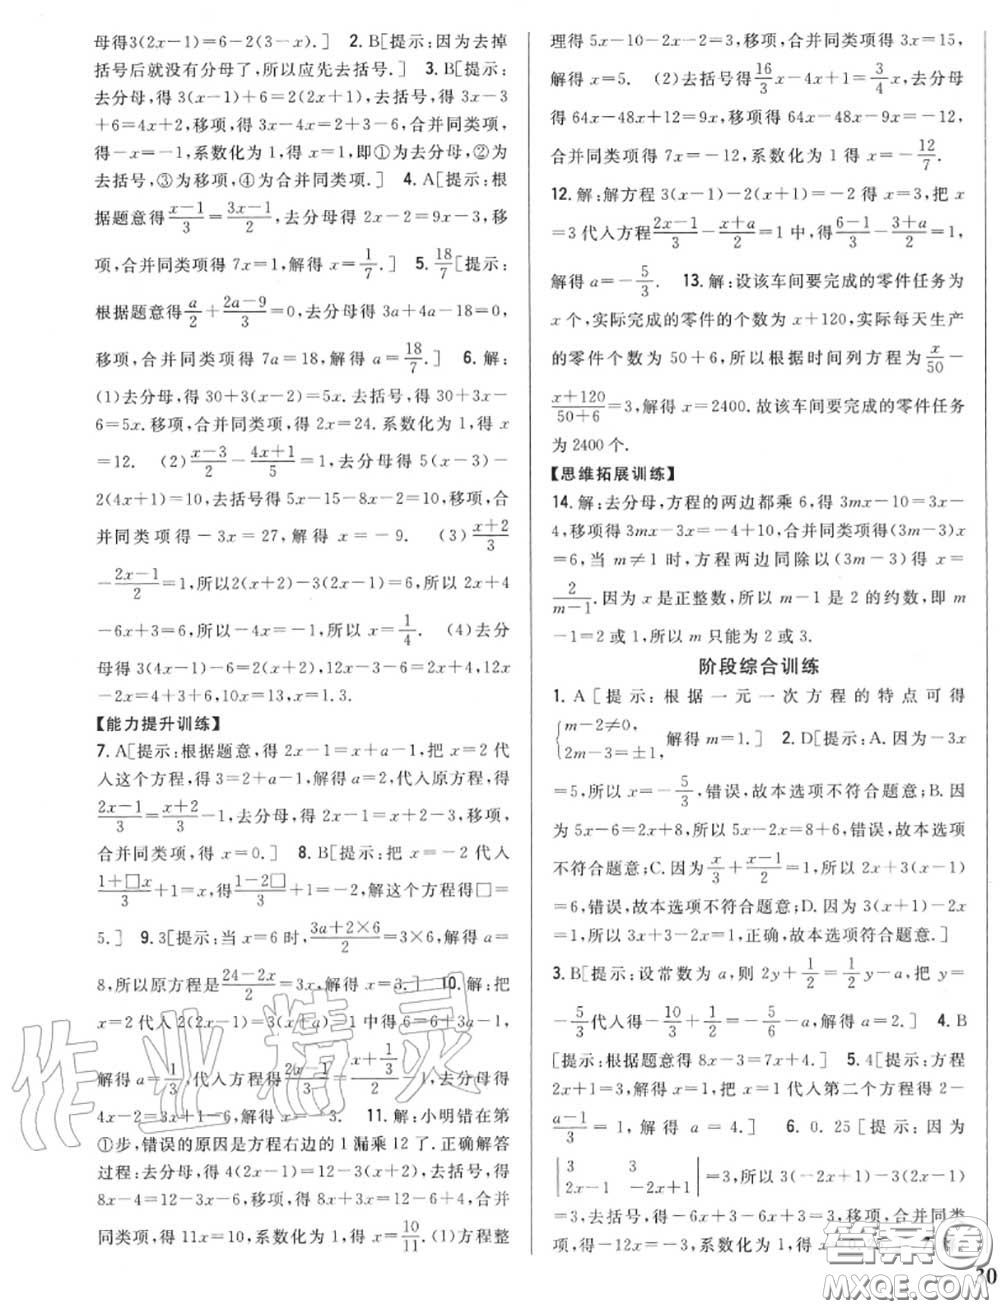 母得3(2x-1)=6-2(3-x).] 2. B[提示:因为去掉
括号后就没有分母了,所以应先去括号.] 3. B[提示:
去分母,得 3(x-1)+6=2(2x+1),去括号,得 3x-3
+6=4x+2,移项,得 3x-4x=2+3-6,合并同类项,
得-x=-1,系数化为 1,得 x=1,即①为去分母,②为
去括号,③为移项,④为合并同类项.] 4. A[提示:根
据题意得(x-1)/3=(3x-1)/2,去分母得 2x-2=9x-3,移
项,合并同类项得 7x=1,解得 x=1/7.] 5. 18/7[提示:
根据题意得a/2+(2a-9)/3=0,去分母得 3a+4a-18=0,
移项,合并同类项得 7a=18,解得 a=18/7.] 6. 解:
(1)去分母,得 30+3(x-2)=5x. 去括号,得 30+3x-
6=5x. 移项,合并同类项,得 2x=24. 系数化为 1,得 x
=12. (2)(x-3)/2-(4x+1)/5=1,去分母得 5(x-3)-
2(4x+1)=10,去括号得 5x-15-8x-2=10,移项,合
并同类项得-3x=27,解得 x=-9. (3)(x+2)/3
-(2x-1)/2=1,所以2(x+2)-3(2x-1)=6,所以 2x+4
-6x+3=6,所以-4x=-1,所以 x=1/4. (4)去分
母得 3(4x-1)-6=2(2x+2),12x-3-6=4x+4,12x
-2x=4+3+6,10x=13,x=1.3.
【能力提升训练】
7. A[提示:根据题意,得 2x-1=x+a-1,把 x=2 代
入这个方程,得 3=2+a-1,解得 a=2,代入原方程,得
(2x-1)/3=(x+2)/3-1,去分母,得 2x-1=x+2-3,移项,
合并同类项,得 x=0.] 8. B[提示:把 x=-2 代入
(1+□x)/3+1=x,得(1-2□)/3+1=-2,解这个方程得□=
5.] 9. 3[提示:当 x=6 时,(3a+2×6)/2=3×6,解得 a=
8,所以原方程是(24-2x)/2=3x,解得 x=3.] 10. 解:把
x=2 代入 2(2x-1)=3(x+a)-1 中得 6=6+3a-1,
解得 a=1/3,代入方程得(2x-1)/3=(x+1/3)/2-1,去分母得
4x-2=3x+1-6,解得 x=-3. 11. 解:小明错在第
①步,错误的原因是方程右边的 1 漏乘 12 了. 正确解答
过程:去分母,得 4(2x-1)=12-3(x-2),去括号,得
8x-4=12-3x+6,移项,得 8x+3x=12+6+4,合并
同类项,得 11x=10,系数化为 1,得 x=10/11. (1)方程整
理得 5x-10-2x-2=3,移项,合并同类项得 3x=15,
解得 x=5. (2)去括号得16/3x-4x+1=3/4x,去分母
得 64x-48x+12=9x,移项得 64x-48x-9x=-12,
合并同类项得 7x=-12,系数化为 1 得 x=-12/7.
12. 解:解方程 3(x-1)-2(x+1)=-2 得 x=3,把 x
=3 代入方程(2x-1)/3-(x+a)/2=1 中,得(6-1)/3-(3+a)/2=1,
解得 a=-5/3. 13. 解:设该车间要完成的零件任务为
x 个,实际完成的零件的个数为 x+120,实际每天生产
的零件个数为 50+6,所以根据时间列方程为x/50-
(x+120)/(50+6)=3,解得 x=2400. 故该车间要完成的零件任务
为 2400 个.
【思维拓展训练】
14. 解:去分母,方程的两边都乘 6,得 3mx-10=3x-
4,移项得 3mx-3x=-4+10,合并同类项得(3m-3)x
=6,当 m≠1 时,方程两边同除以(3m-3)得 x=
2/(m-1). 因为 x 是正整数,所以 m-1 是 2 的约数,即 m
-1=2 或 1,所以 m 只能为 2 或 3.
阶段综合训练
1. A[提示:根据一元一次方程的特点可得
{m-2≠0, 2m-3=±1, 解得 m=1.] 2. D[提示:A. 因为-3x
=5,所以 x=-5/3,错误,故本选项不符合题意;B. 因
为 5x-6=2x+8,所以 5x-2x=8+6,错误,故本选项
不符合题意;C. 因为x/3+(x-1)/2=1,所以 2x+3(x-1)
=6,错误,故本选项不符合题意;D. 因为 3(x+1)-2x
=1,所以 3x+3-2x=1,正确,故本选项符合题意.]
3. B[提示:设常数为 a,则 2y+1/2=1/2y-a,把 y=
-5/3代入得-10/3+1/2=-5/6-a,解得 a=2.] 4. B
[提示:根据题意得 8x-3=7x+4.] 5. 4[提示:方程
2x+1=3,解得 x=1,把 x=1代入第二个方程得 2-
(a-1)/3=1,解得 a=4.] 6. 0.25[提示:因为
|3 3|
|2x-1 -2x+1|=3,所以 3(-2x+1)-3(2x-1)
=3,去括号,得-6x+3-6x+3=3,移项,合并同类
项,得-12x=-3,系数化为 1,得 x=
作业精灵
答案圈
MXQE.COM
20